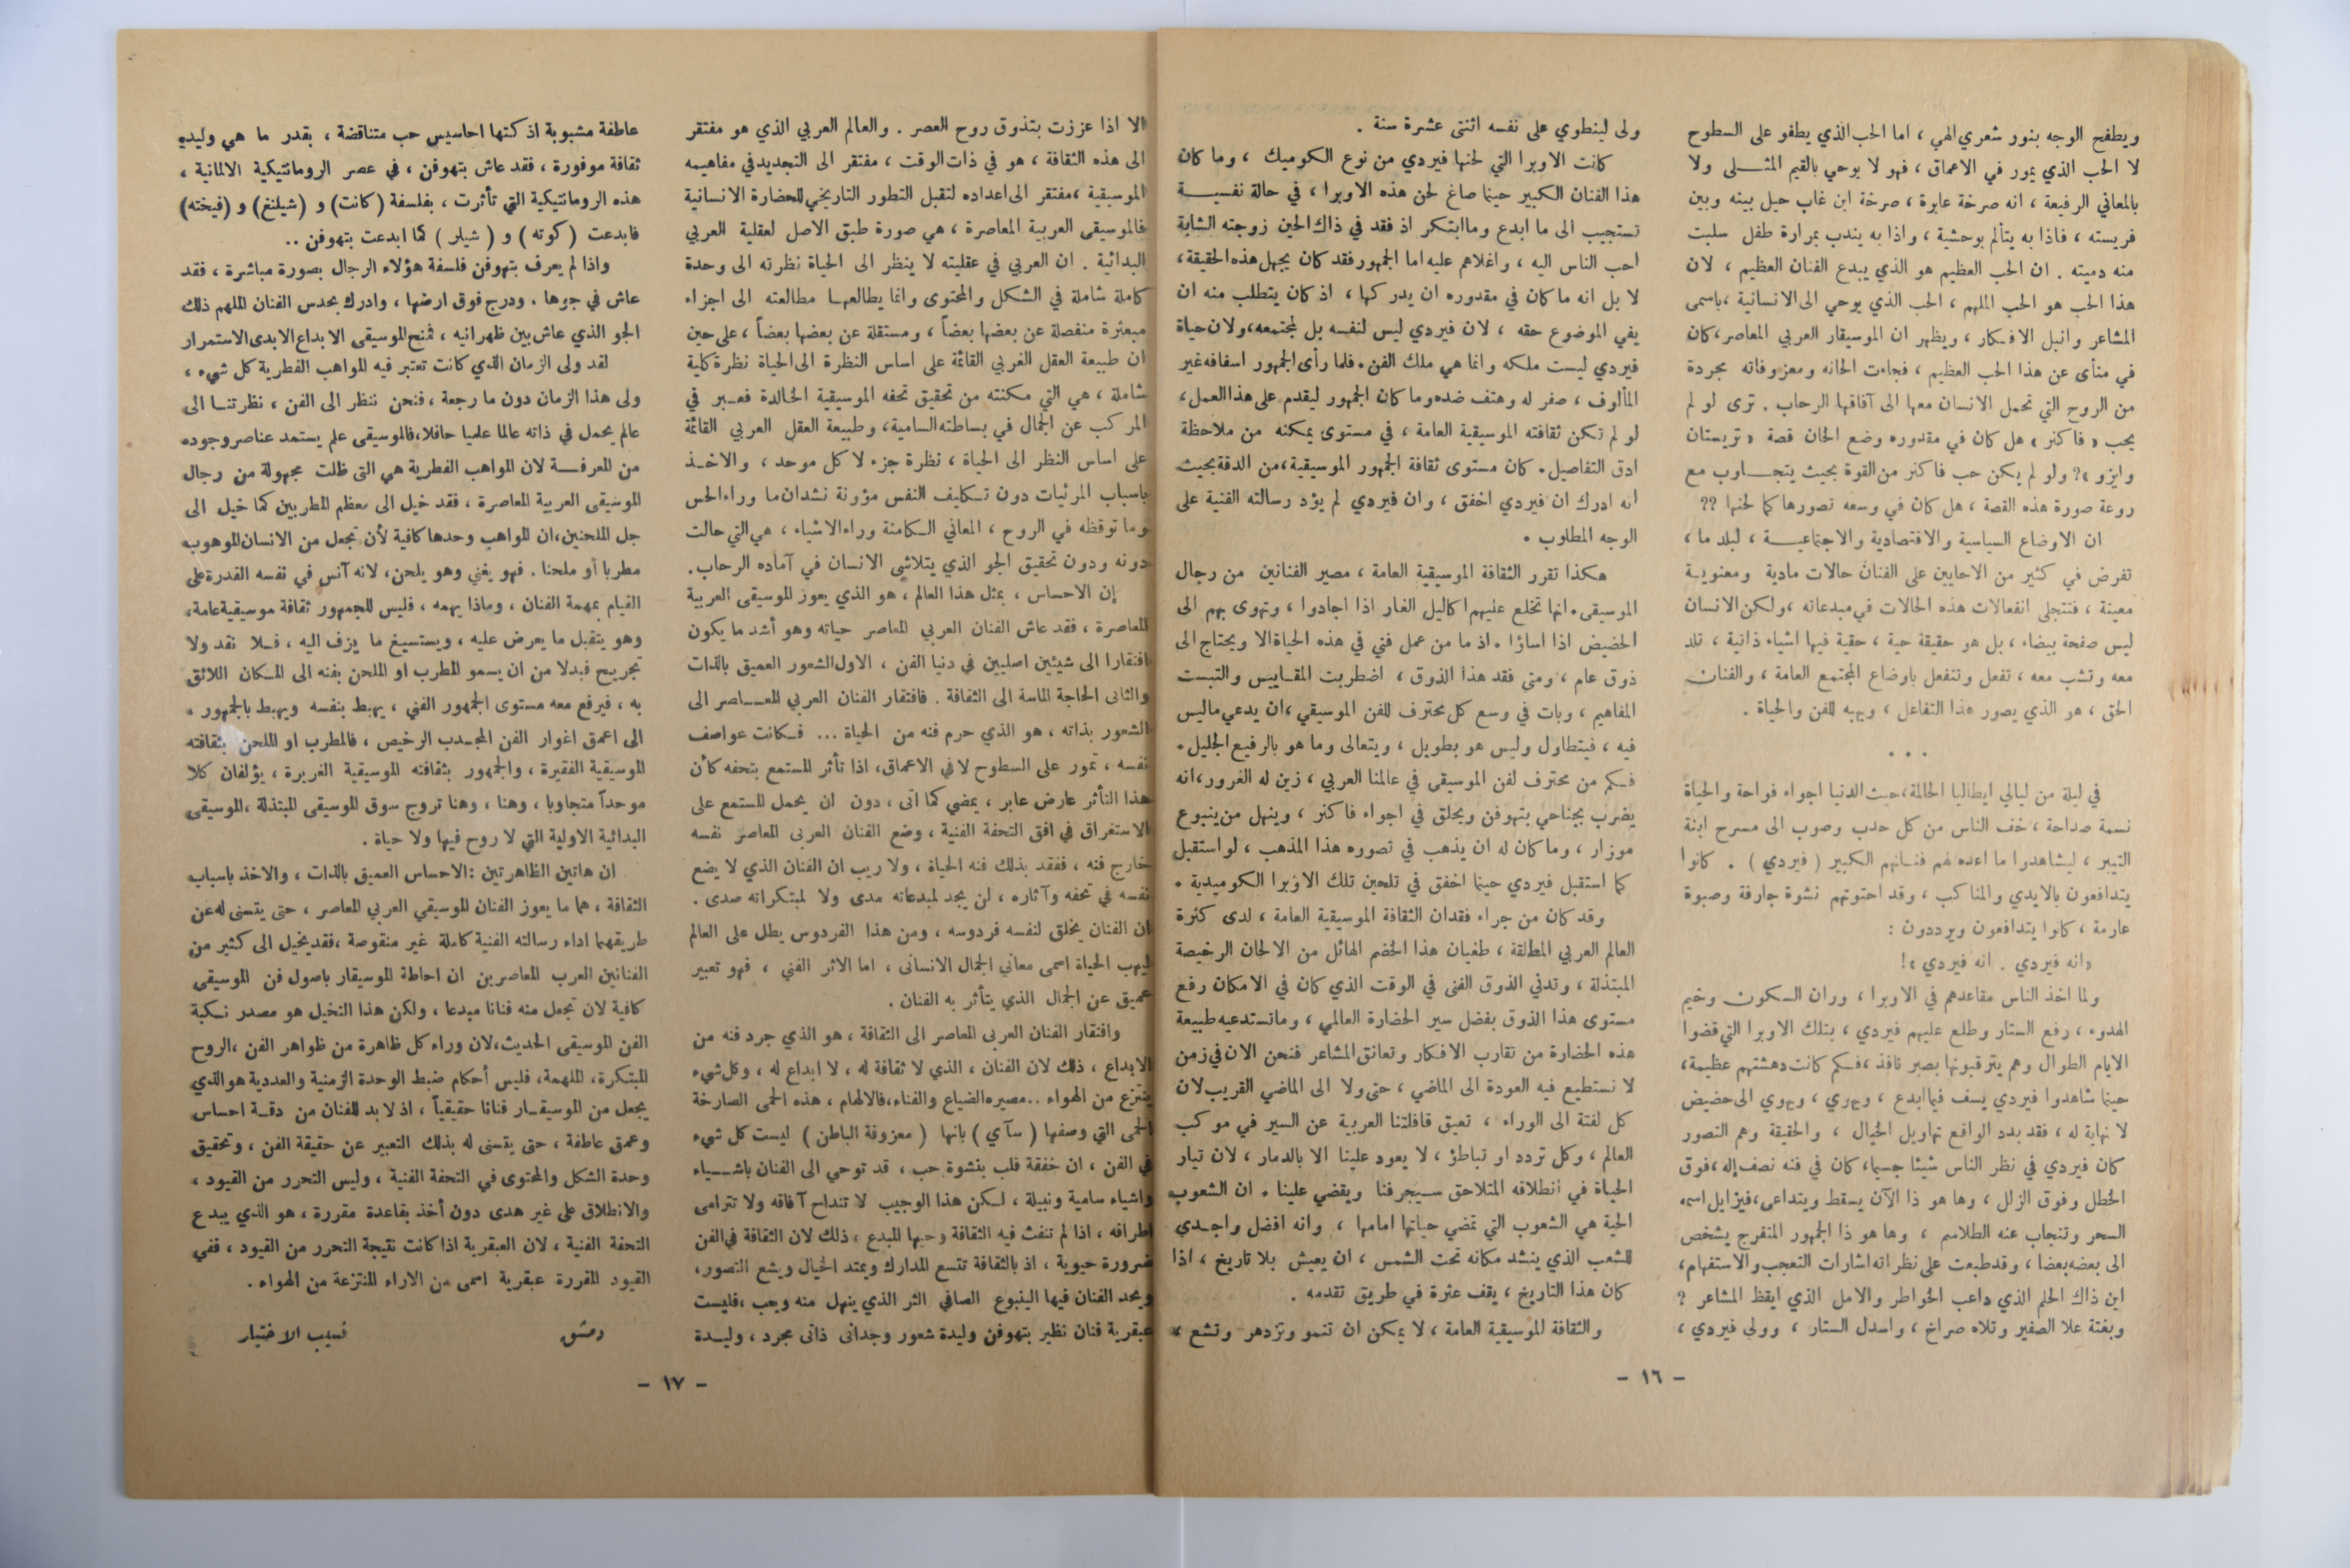 ويطفح الوجه بنور شعري الهي ، اما الحب الذي يطفو على السطوح
لا الحب الذي يمور في الاعماق ، فهو لا يوحي بالقيم المثلى ولا
بالمعاني الرفيعة ، انه صرخة عابرة ، صرخة ابن غاب حيل بينه وبين
فريسته ، فاذا به يتألم بوحشية ، واذا به يندب بمرارة طفل سلبت
منه دميته . ان الحب العظيم هو الذي يبدع الفنان العظيم ، لان
هذا الحب هو الحب الملهم ، الحب الذي يوحي الى الانسانية ، باسمى
المشاعر وانبل الافكار ، ويظهر ان الموسيقار العربي المعاصر ، كان
في منأى عن هذا الحب العظيم ، فجاءت الحانه ومعزوفاته مجردة
من الروح التي تحمل الانسان معها الى آفاقها الرحاب . ترى لو لم
يحب « فاكنر » هل كان في مقدوره وضع الحان قصة « تريستان
وايزو »؟ ولو لم يكن حب فاكنر من القوة بحيث يتجاوب مع
روعة صورة هذه القصة ، هل كان في وسعه تصورها كما لحنها ؟؟
ان الاوضاع السياسية والاقتصادية والاجتماعية ، لبلد ما ،
تفرض في كثير من الاحايين على الفنان حالات مادية ومعنوية
معينة ، فتتجلى انفعالات هذه الحالات في مبدعاته ، ولكن الانسان
ليس صفحة بيضاء ، بل هو حقيقة حية ، حقية فيها اشياء ذاتية ، تلد
معه وتشب معه ، تفعل وتنفعل باوضاع المجتمع العامة ، والفنان
الحق ، هو الذي يصور هذا التفاعل ، ويهبه للفن والحياة .
• • •
في ليلة من ليالي ايطاليا الحالمة ، حيث الدنيا اجواء فواحة والحياة
نسمة صداحة ، خف الناس من كل حدب وصوب الى مسرح ابنة
التيبر ، ليشاهدوا ما اعده لهم فنانهم الكبير ( فيردي ) . كانوا
يتدافعون بالايدي والمناكب ، وقد احتوتهم نشوة جارفة وصبوة
عارمة ، كانوا يتدافعون ويرددون :
« انه فيردي . انه فيردي »!
ولما اخذ الناس مقاعدهم في الاوبرا ، وران السكون وخيم
الهدوء ، رفع الستار وطلع عليهم فيردي ، بتلك الاوبرا التي قضوا
الايام الطوال وهم يترقبونها بصبر نافذ ، فكم كانت دهشتهم عظيمة ،
حينما شاهدوا فيردي يسف فيما ابدع ، ويهوي ، ويهوي الى حضيض
لا نهاية له ، فقد بدد الواقع تهاويل الخيال ، والحقيقة وهم التصور
كان فيردي في نظر الناس شيئا جسيما ، كان في فنه نصف إله ، فوق
الخطل وفوق الزلل ، وها هو ذا الآن يسقط ويتداعى ، فيزايل اسمه
السحر وتنجاب عنه الطلاسم ، وها هو ذا الجمهور المتفرج يشخص
الى بعضه بعضا ، وقد طبعت على نظراته اشارات التعجب والاستفهام ،
اين ذاك الحلم الذي داعب الخواطر والامل الذي ايقظ المشاعر ؟
وبغتة علا الصفير وتلاه صراخ ، واسدل الستار ، وولى فيردي ،
ولى لينطوي على نفسه اثنتى عشرة سنة .
كانت الاوبرا التي لحنها فيردي من نوع الكوميك ، وما كان
هذا الفنان الكبير حينما صاغ لحن هذه الاوبرا ، في حالة نفسية
تستجيب الى ما ابدع وما ابتكر اذ فقد في ذاك الحين زوجته الشابة
احب الناس اليه ، واغلاهم عليه اما الجمهور فقد كان يجهل هذه الحقيقة ،
لا بل انه ما كان في مقدوره ان يدركها ، اذ كان يتطلب منه ان
يفي الموضوع حقه ، لان فيردي ليس لنفسه بل لمجتمعه ، ولان حياة
فيردي ليست ملكه وانما هي ملك الفن . فلما رأى الجمهور اسفافه غير
المألوف ، صفر له وهتف ضده وما كان الجمهور ليقدم على هذا العمل ،
لو لم تكن ثقافته الموسيقية العامة ، في مستوى يمكنه من ملاحظة
ادق التفاصيل . كان مستوى ثقافة الجمهور الموسيقية ، من الدقة بحيث
انه ادرك ان فيردي اخفق ، وان فيردي لم يؤد رسالته الفنية على
الوجه المطلوب .
هكذا تقرر الثقافة الموسيقية العامة ، مصير الفنانين من رجال
الموسيقى . انها تخلع عليهم اكاليل الغار اذا اجادوا ، وتهوى بهم الى
الحضيض اذا اساؤا . اذ ما من عمل فني في هذه الحياة الا ويحتاج الى
ذوق عام ، ومتى فقد هذا الذوق ، اضطربت المقاييس والتبست
المفاهيم ، وبات في وسع كل محترف للفن الموسيقي ، ان يدعي ما ليس
فيه ، فيتطاول وليس هو بطويل ، ويتعالى وما هو بالرفيع الجليل .
فكم من محترف لفن الموسيقى في عالمنا العربي ، زين له الغرور ، انه
يضرب بجناحي بتهوفن ويحلق في اجواء فاكنر ، وينهل من ينبوع
موزار ، وما كان له ان يذهب في تصوره هذا المذهب ، لو استقبل
كما استقبل فيردي حينما اخفق في تلحين تلك الاوبرا الكوميدية .
وقد كان من جراء فقدان الثقافة الموسيقية العامة ، لدى كثرة
العالم العربي المطلقة ، طغيان هذا الخضم الهائل من الالحان الرخيصة
المبتذلة ، وتدني الذوق الفنى في الوقت الذي كان في الامكان رفع
مستوى هذا الذوق بفضل سير الحضارة العالمي ، وما تستدعيه طبيعة
هذه الحضارة من تقارب الافكار وتعانق المشاعر فنحن الان في زمن
لا نستطيع فيه العودة الى الماضي ، حتى ولا الى الماضي القريب لان
كل لفتة الى الوراء ، تعيق قافلتنا العربية عن السير في موكب
العالم ، وكل تردد او تباطؤ ، لا يعود علينا الا بالدمار ، لان تيار
الحياة في انطلاقه المتلاحق سيجرفنا ويقضي علينا . ان الشعوب
الحية هي الشعوب التي تمضي حياتها امامها ، وانه افضل واجدى
للشعب الذي ينشد مكانه تحت الشمس ، ان يعيش بلا تاريخ ، اذا
كان هذا التاريخ ، يقف عثرة في طريق تقدمه .
والثقافة الموسيقية العامة ، لا يمكن ان تنمو وتزدهر وتشع ،
- ١٦ -
الا اذا عززت بتذوق روح العصر . والعالم العربي الذي هو مفتقر
الى هذه الثقافة ، هو في ذات الوقت ، مفتقر الى التجديد في مفاهيمه
الموسيقية ، مفتقر الى اعداده لتقبل التطور التاريخي للحضارة الانسانية
فالموسيقى العربية المعاصرة ، هي صورة طبق الاصل لعقلية العربي
البدائية . ان العربي في عقليته لا ينظر الى الحياة نظرته الى وحدة
كاملة شاملة في الشكل والمحتوى وانما يطالعها مطالعته الى اجزاء
مبعثرة منفصلة عن بعضها بعضاً ، ومستقلة عن بعضها بعضاً ، على حين
ان طبيعة العقل الغربي القائمة على اساس النظرة الى الحياة نظرة كلية
شاملة ، هي التي مكنته من تحقيق تحفه الموسيقية الخالدة فعبر في
المركب عن الجمال في بساطته السامية ، وطبيعة العقل العربي القائمة
على اساس النظر الى الحياة ، نظرة جزء لا كل موحد ، والاخذ
باسباب المرئيات دون تكليف النفس مؤونة نشدان ما وراء الحس
وما توقظه في الروح ، المعاني الكامنة وراء الاشياء ، هي التي حالت
دونه ودون تحقيق الجو الذي يتلاشى الانسان في آماده الرحاب .
إن الاحساس ، بمثل هذا العالم ، هو الذي يعوز الموسيقى العربية
المعاصرة ، فقد عاش الفنان العربي المعاصر حياته وهو أشد ما يكون
افتقارا الى شيئين اصليين في دنيا الفن ، الاول الشعور العميق بالذات
والثانى الحاجة الماسة الى الثقافة . فافتقار الفنان العربي المعاصر الى
الشعور بذاته ، هو الذي حرم فنه من الحياة ... فكانت عواصف
نفسه ، تمور على السطوح لا في الاعماق ، اذا تأثر المستمع بتحفه كأن
هذا التأثر عارض عابر ، يمضي كما اتى ، دون ان يحمل المستمع على
الاستغراق في افق التحفة الفنية ، وضع الفنان العربى المعاصر نفسه
خارج فنه ، ففقد بذلك فنه الحياة ، ولا ريب ان الفنان الذي لا يضع
نفسه في تحفه وآثاره ، لن يجد لمبدعاته مدى ولا لمبتكراته صدى .
ان الفنان يخلق لنفسه فردوسه ، ومن هذا الفردوس يطل على العالم
ليهب الحياة اسمى معاني الجمال الانسانى ، اما الاثر الفني ، فهو تعبير
عميق عن الجمال الذي يتأثر به الفنان .
وافتقار الفنان العربى المعاصر الى الثقافة ، هو الذي جرد فنه من
الابداع ، ذلك لان الفنان ، الذي لا ثقافة له ، لا ابداع له ، وكل شيء
ينتزع من الهواء .. مصيره الضياع والفناء ، فالالهام ، هذه الحمى الصارخة
الحمى التي وصفها ( سآي ) بانها ( معزوفة الباطن ) ليست كل شيء
في الفن ، ان خفقة قلب بنشوة حب ، قد توحي الى الفنان باشياء
واشياء سامية ونبيلة ، لكن هذا الوجيب لا تنداح آفاقه ولا تترامى
اطرافه ، اذا لم تنفث فيه الثقافة وحيها المبدع ، ذلك لان الثقافة في الفن
ضرورة حيوية ، اذ بالثقافة تتسع المدارك ويمتد الخيال ويشع التصور ،
ويجد الفنان فيها الينبوع الصافي الثر الذي ينهل منه ويعب ، فليست
عبقرية فنان نظير بتهوفن وليدة شعور وجدانى ذاتى مجرد ، وليدة
عاطفة مشبوبة اذ كتها احاسيس حب متناقضة ، بقدر ما هي وليدة
ثقافة موفورة ، فقد عاش بتهوفن ، في عصر الرومانتيكية الالمانية ،
هذه الرومانتيكية التي تأثرت ، بفلسفة (كانت) و (شيلنغ) و (فيخته)
فابدعت ( كوته ) و ( شيلر ) كما ابدعت بتهوفن ..
واذا لم يعرف بتهوفن فلسفة هؤلاء الرجال بصورة مباشرة ، فقد
عاش في جوها . ودرج فوق ارضها ، وادرك بحدس الفنان الملهم ذلك
الجو الذي عاش بين ظهرانيه ، فمنح الموسيقى الابداع الابدى الاستمرار
لقد ولى الزمان الذي كانت تعتبر فيه المواهب الفطرية كل شيء ،
ولى هذا الزمان دون ما رجعة ، فنحن ننظر الى الفن ، نظرتنا الى
عالم يحمل في ذاته عالما علميا حافلا ، فالموسيقى علم يستمد عناصر وجوده
من المعرفة لان المواهب الفطرية هي التى ظلت مجهولة من رجال
الموسيقى العربية المعاصرة ، فقد خيل الى معظم المطربين كما خيل الى
جل الملحنين ، ان المواهب وحدها كافية لأن تجعل من الانسان الموهوب
مطربا أو ملحنا . فهو يغني وهو يلحن ، لانه آنس في نفسه القدرة على
القيام بمهمة الفنان ، وماذا يهمه ، فليس للجمهور ثقافة موسيقية عامة ،
وهو يتقبل ما يعرض عليه ، ويستسيغ ما يزف اليه ، فلا نقد ولا
تجريح فبدلا من ان يسمو المطرب او الملحن بفنه الى المكان اللائق
به ، فيرفع معه مستوى الجمهور الفني ، يهبط بنفسه ويهبط بالجمهور .
الى اعمق اغوار الفن المجدب الرخيص ، فالمطرب او الملحن بثقافته
الموسيقية الفقيرة ، والجمهور بثقافته الموسيقية الغريرة ، يؤلفان كلا
موحداً متجاوبا ، وهنا ، وهنا تروج سوق الموسيقى المبتذلة ، الموسيقى
البدائية الاولية التي لا روح فيها ولا حياة .
ان هاتين الظاهرتين : الاحساس العميق بالذات ، والاخذ باسباب
الثقافة ، هما ما يعوز الفنان الموسيقي العربي المعاصر ، حتى يتسنى له عن
طريقهما اداء رسالته الفنية كاملة غير منقوصة ، فقد يخيل الى كثير من
الفنانين العرب المعاصرين ان احاطة الموسيقار باصول فن الموسيقى
كافية لان تجعل منه فنانا مبدعا ، ولكن هذا التخيل هو مصدر نكبة
الفن الموسيقى الحديث ، لان وراء كل ظاهرة من ظواهر الفن ، الروح
المبتكرة ، الملهمة ، فليس أحكام ضبط الوحدة الزمنية والعددية هو الذي
يجعل من الموسيقار فنانا حقيقياً ، اذ لا بد للفنان من دقة احساس
وعمق عاطفة ، حتى يتسنى له بذلك التعبير عن حقيقة الفن ، وتحقيق
وحدة الشكل والمحتوى في التحفة الفنية ، وليس التحرر من القيود ،
والانطلاق على غير هدى دون أخذ بقاعدة مقررة ، هو الذي يبدع
التحفة الفنية ، لان العبقرية اذا كانت نتيجة التحرر من القيود ، ففي
القيود المقررة عبقرية اسمى من الاراء المنتزعة من الهواء .
دمشق نسيب الاختيار
- ١٧ -